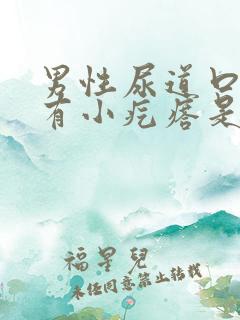 男性尿道口
有小疙瘩是
福星儿
未经同意禁止转载